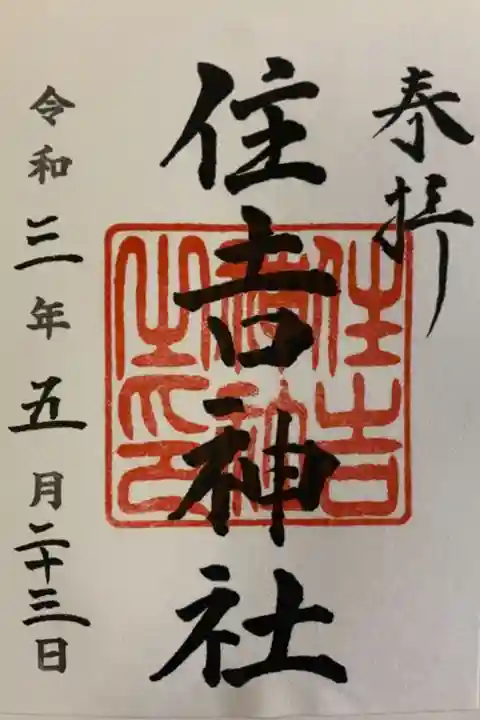 奉拝
住吉神社
住吉
神
之印
令和三年五月二十三日